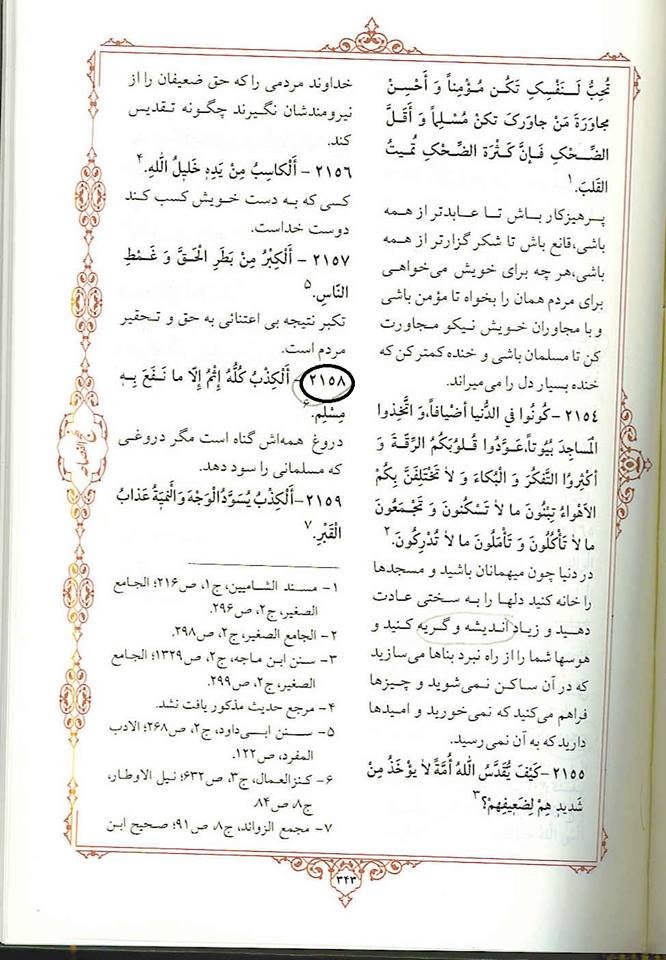 تُحِبُّ لَـنَفْسِکِ تَکُـن مُـؤْمِناً وَ أَحْسِـنْ
مجاوَرَةَ مَنْ جاوَرکَ تکنْ مُسْـلِماً وَ أَقَـلَّ
الضِّـحْکِ فَـإنَّ کَـثْرَة الضِّـحْکِ تُمـیتُ
القَلبَ.۱
پـرهیزکار بـاش تـا عـابدتر از همه
باشی،قانع باش تا شکر گزارتر از همه
باشی،هر چه برای خویش می‌خواهی
برای مردم همان را بخواه تا مؤمن باشی
و با مجاوران خویش نیکو مـجاورت
کن تا مسلمان باشی و خنده کمتر کن که
خنده بسیار دل را می‌میراند.
۲۱۵۴ - کُونُوا فی الدُّنیا أضیافاً،وَ اتَّخِذوا
الْمَساجِدَ بیُوتاً،عَـوِّدُوا قُـلوُبَکُمُ الرِّقَّـةَ وَ
أکْثِرُوا التَّفَکُرَ وَ الْبُکاءَ وَ لاٰ تَخْتَلِفَنَّ بِکُمُ
الاَهْواءُ تِبْنُونَ ما لاٰ تَسْکُنُونَ وَ تَجْمَعُونَ
ما لاٰ تَأکُلُونَ وَ تَأمَلُونَ ما لاٰ تُدْرِکُونَ.۲
در دنیا چون میهمانان باشید و مسجدها
را خانه کنید دلهـا را بـه سـختی عـادت
دهـید و زیـاد اندیشه و گریه کـنید و
هوسها شما را از راه نبرد بناها می‌سازید
که در آن ساکـن نـمی‌شوید و چـیزها
فراهم می‌کنید که نمی‌خورید و امیدها
دارید که به آن نمی‌رسید.
۲۱۵۵ -کَیْفَ یُقَدَّسُ اللهُ أُمَّةً لاٰ یؤْخَذُ مِنْ
شَدیدِ هِمْ لِضَعیفِهِمْ؟۳
خداوند مردمی را که حق ضعیفان را از
نیرومندشان نگـیرند چگـونه تـقدیس
کند.
۲۱۵۶ - أَلْکاسِبُ مِنْ یَدِهِ خَلیلُ اللهِ.۴
کسی که بـه دست خویش کسب کـند
دوست خداست.
۲۱۵۷ - أَلْکِبْرُ مِنْ بَطَرِ الْحَقَّ وَ غَـمْطِ
النَّاسِ.۵
تکبر نتیجه بی اعتنائی به حق و تـحقیر
مردم است.
۲۱۵۸ - أَلْکِذْبُ کُلُّهُ إِثْمُ إِلاّ ما نَـفَعَ بِـهِ
مِسْلِم.۶
دروغ همه‌اش گناه است مگر دروغـی
که مسلمانی را سود دهد.
۲۱۵۹ -أَلْکِذْبُ یُسَوِّدُ الْوَجْهَ وَالَّنمیمَةُ عَذابُ
الْقَبْرِ.۷
۱- مسند الشامیین، ج۱، ص۲۱۶؛ الجامع
الصغیر، ج۲، ص۲۹۶.
۲- الجامع الصغیر، ج۲، ص۲۹۸.
۳- سنن ابـن مـاجه، ج۲، ص۱۳۲۹؛ الجامع
الصغیر، ج۲، ص۲۹۹.
۴- مرجع حدیث مذکور یافت نشد.
۵- سـنن ابـی‌داود، ج۲، ص۲۶۸؛ الادب
المفرد، ص۱۲۲.
۶- کنزالعمال، ج۳، ص۶۳۲؛ نـیل الاوطـار،
ج۸، ص۸۴.
۷- مجمع الزوائد، ج۸، ص۹۱؛ صـحیح ابـن
۳۴۳